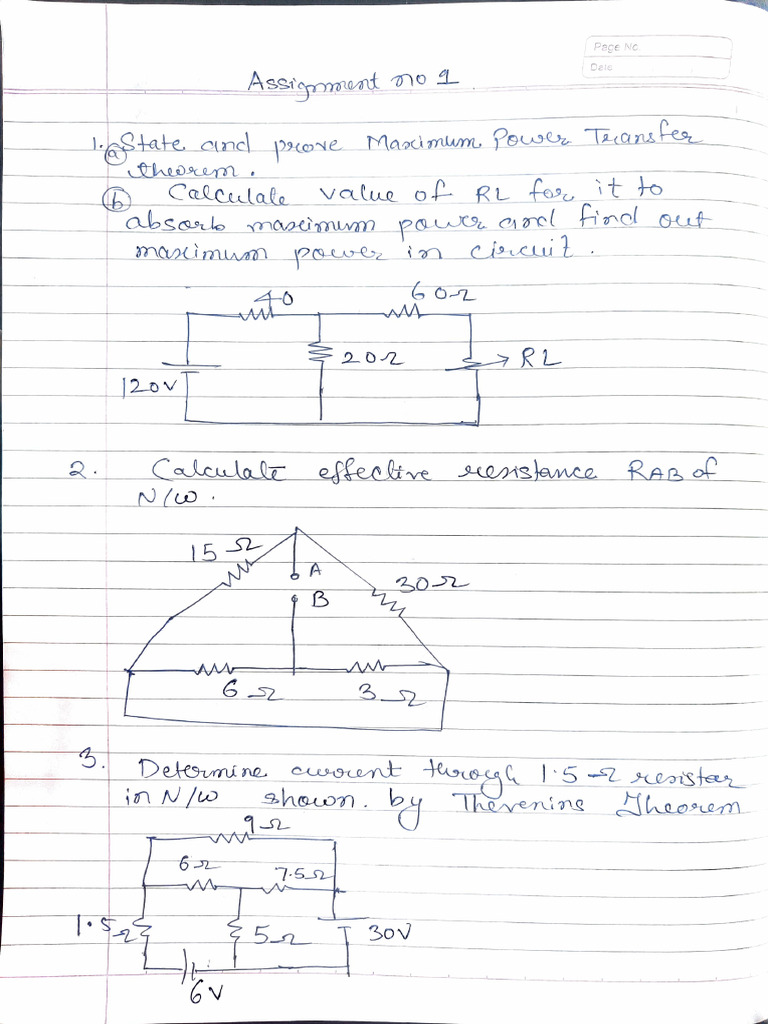 Page No.
Date
Assignment no 1
1. (a) State and prove Maximum Power Transfer
theorem.
(b) Calculate value of RL for it to
absorb maximum power and find out
maximum power in circuit.
40
60Ω
20Ω
RL
120V
2. Calculate effective resistance RAB of
N/W.
15Ω
A
30Ω
B
6Ω
3Ω
3. Determine current through 1.5Ω resistor
in N/W shown. by Thevenins Theorem
9Ω
6Ω
7.5Ω
1.5Ω
5Ω
30V
6V